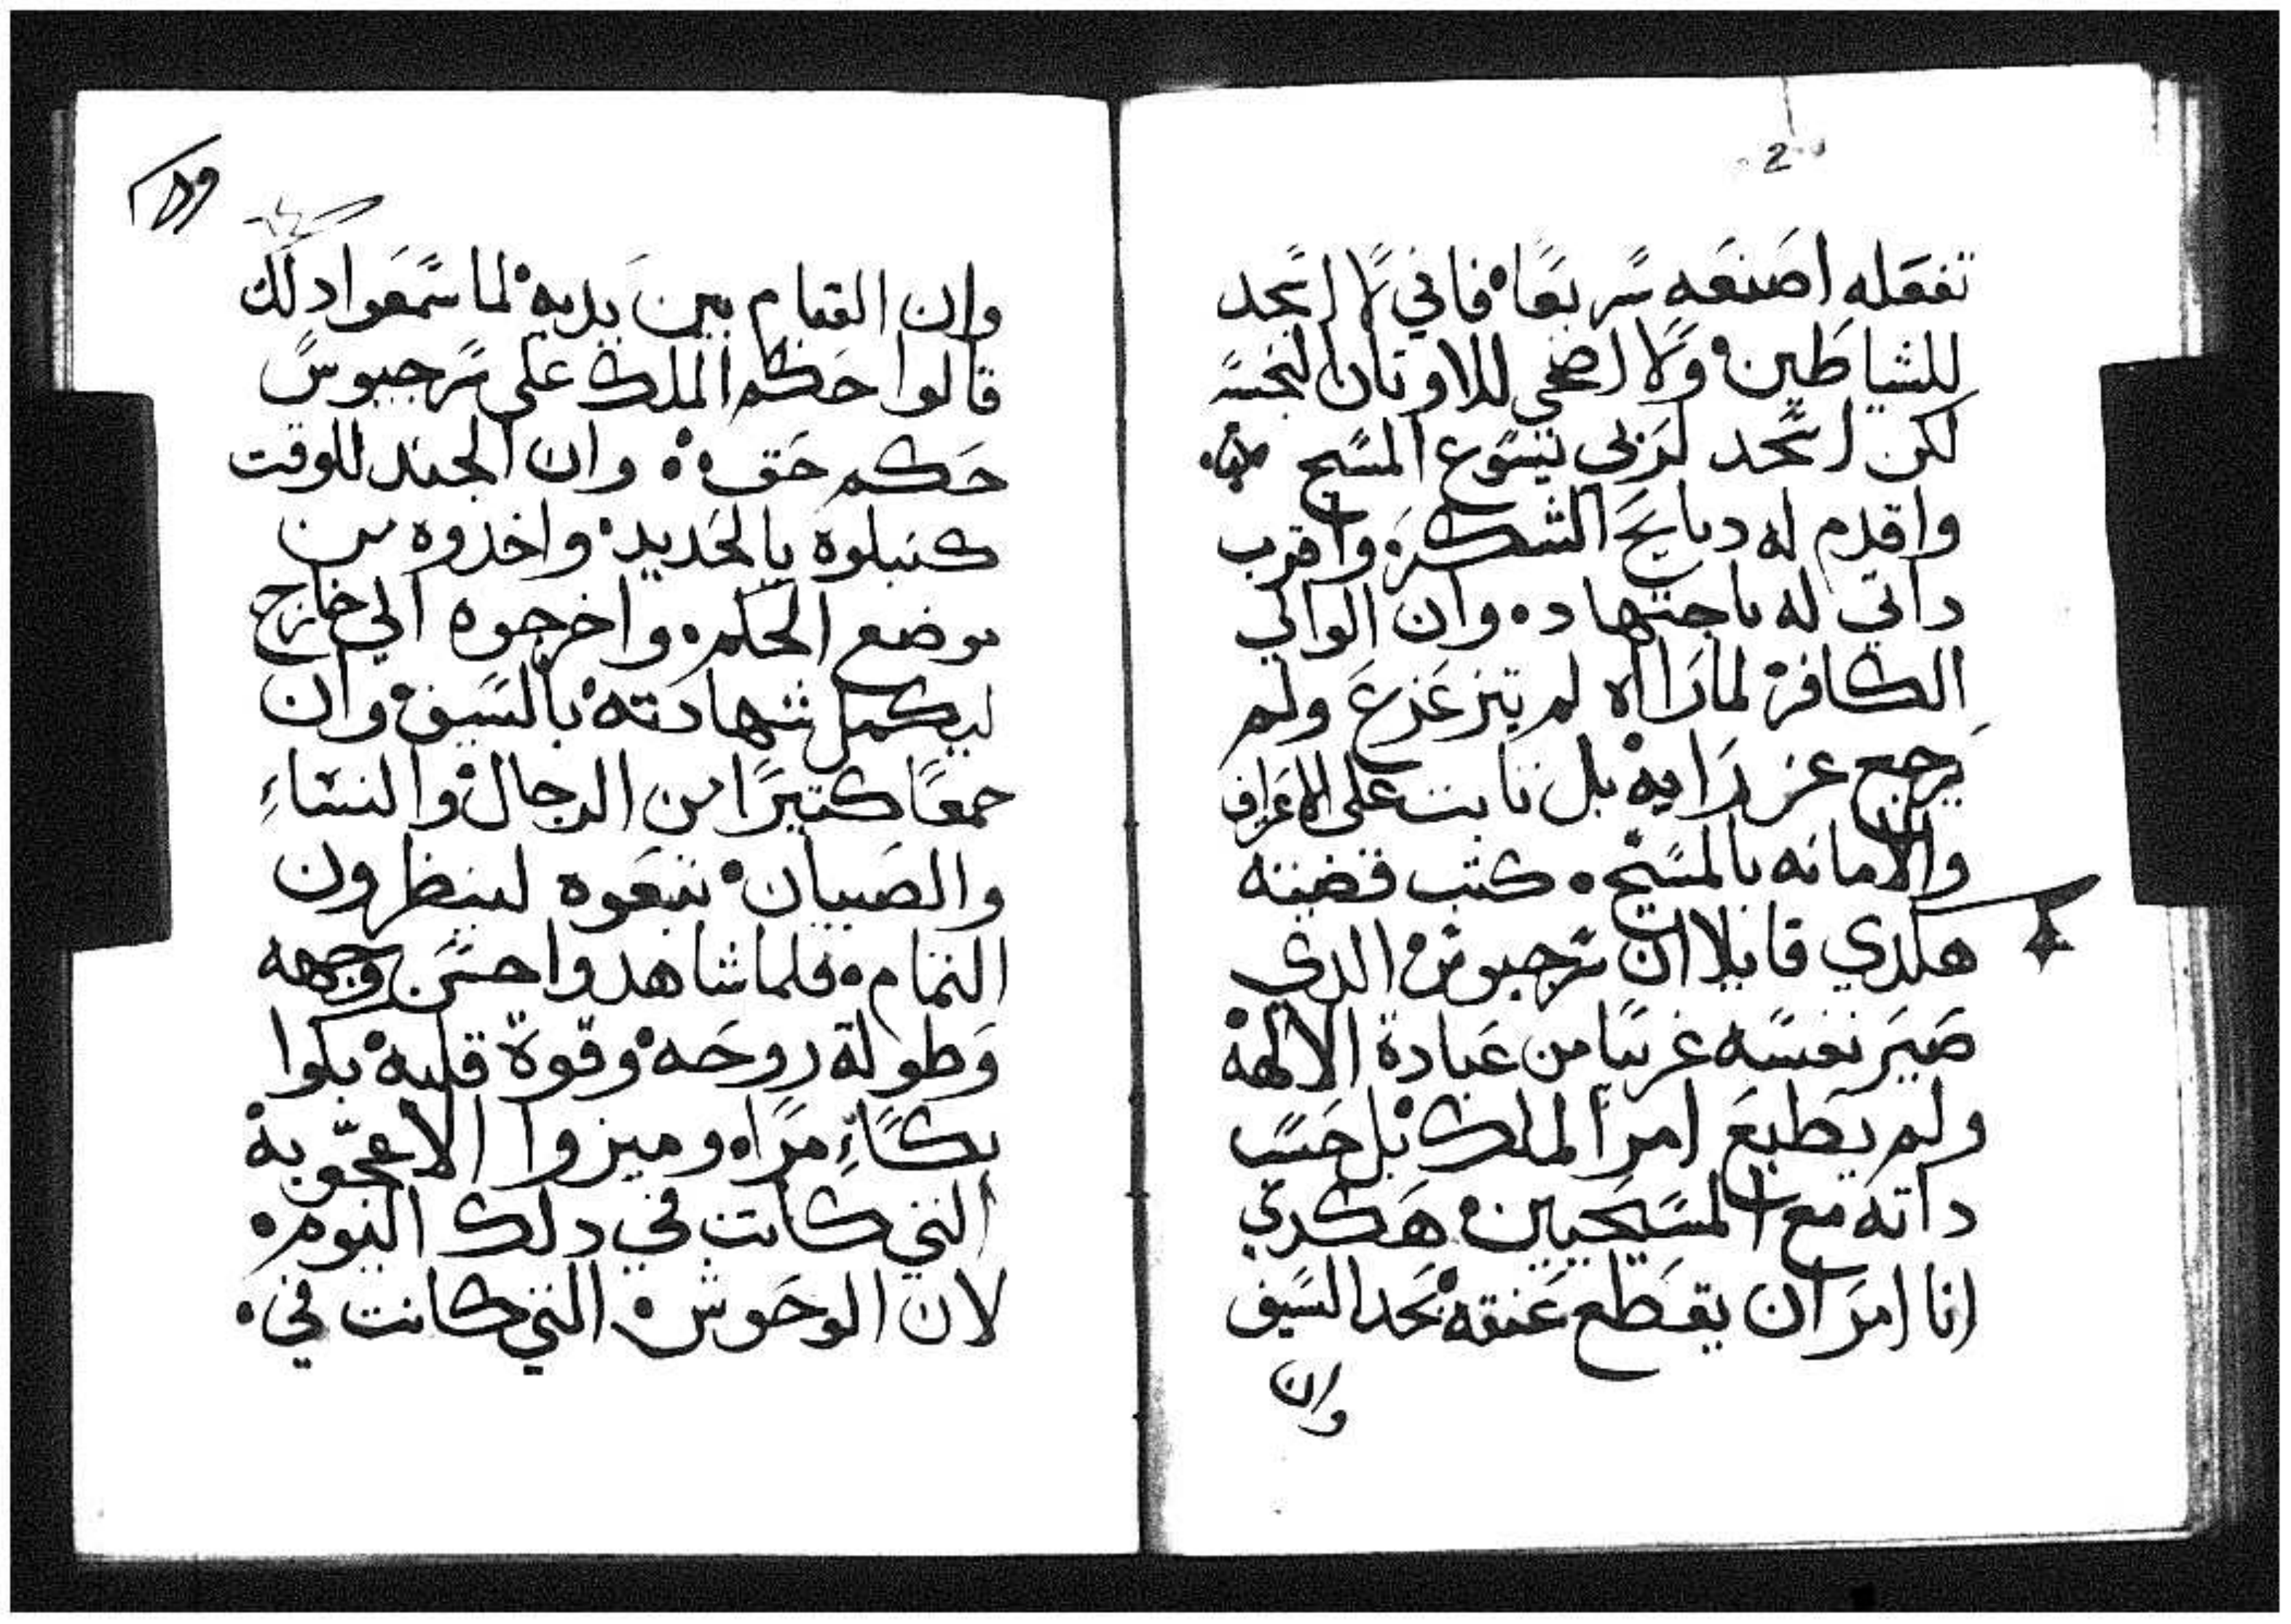 2
تفعله اصنعه سريعًا فاني لا اسجد
للشياطين ولا اضحي للاوتان النجسه
لكن اسجد لربي يسوع المسيح
واقدم له دبايح الشكر واقرب
داتي له باجتهاد وان الوالي
الكافر لما راآه لم يتزعزع ولم
يرجع عن رايه بل تابت على الاعتراف
والامانه بالمسيح كتب قضيته
هكدي قايلا ان سرجيوس الدي
صير نفسه غريبًا من عبادة الالهة
ولم يطيع امر الملك بل حسب
داته مع المسيحيين هكدي
انا امر ان يقطع عنقه بحد السيف
وان
وان القيام بين يديه لما سمعوا دلك
قالوا حكم الملك على سرجيوس
حكم حق وان الجند للوقت
كنبلوه بالحديد واخدوه من
موضع الحكم واخرجوه الي خارج
ليكمل شهادته بالسيف وان
جمعًا كتيرًا من الرجال والنساء
والصبيان تبعوه لينظرون
التمام فلما شاهدوا حسن وجهه
وطولة روحه وقوة قلبه بكوا
بكاءً مرًا وميزوا الاعجوبة
التي كانت في دلك اليوم
لان الوحوش التي كانت في